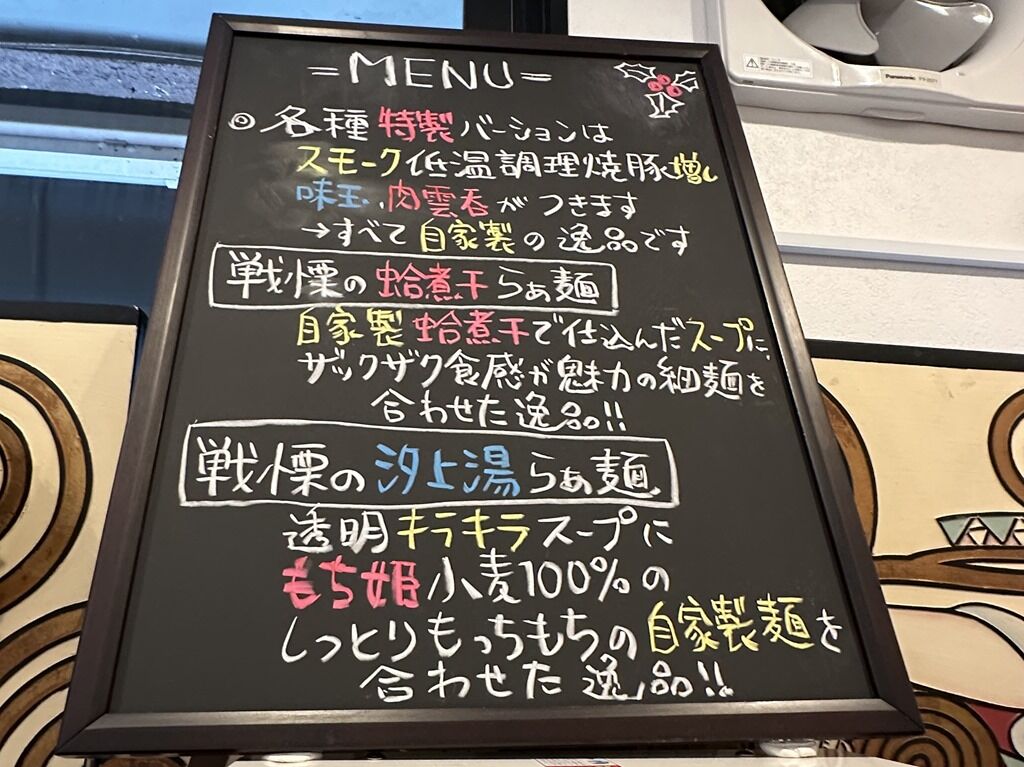 =MENU=
◎各種特製バージョンは
スモーク低温調理焼豚増し
味玉、肉雲呑がつきます
→すべて自家製の逸品です
戦慄の蛤煮干らぁ麺
自家製蛤煮干で仕込んだスープに、
ザックザク食感が魅力の細麺を
合わせた逸品!!
戦慄の汐上湯らぁ麺
透明キラキラスープに
もち姫小麦100%の
しっとりもっちもちの自家製麺を
合わせた逸品!!
Panasonic